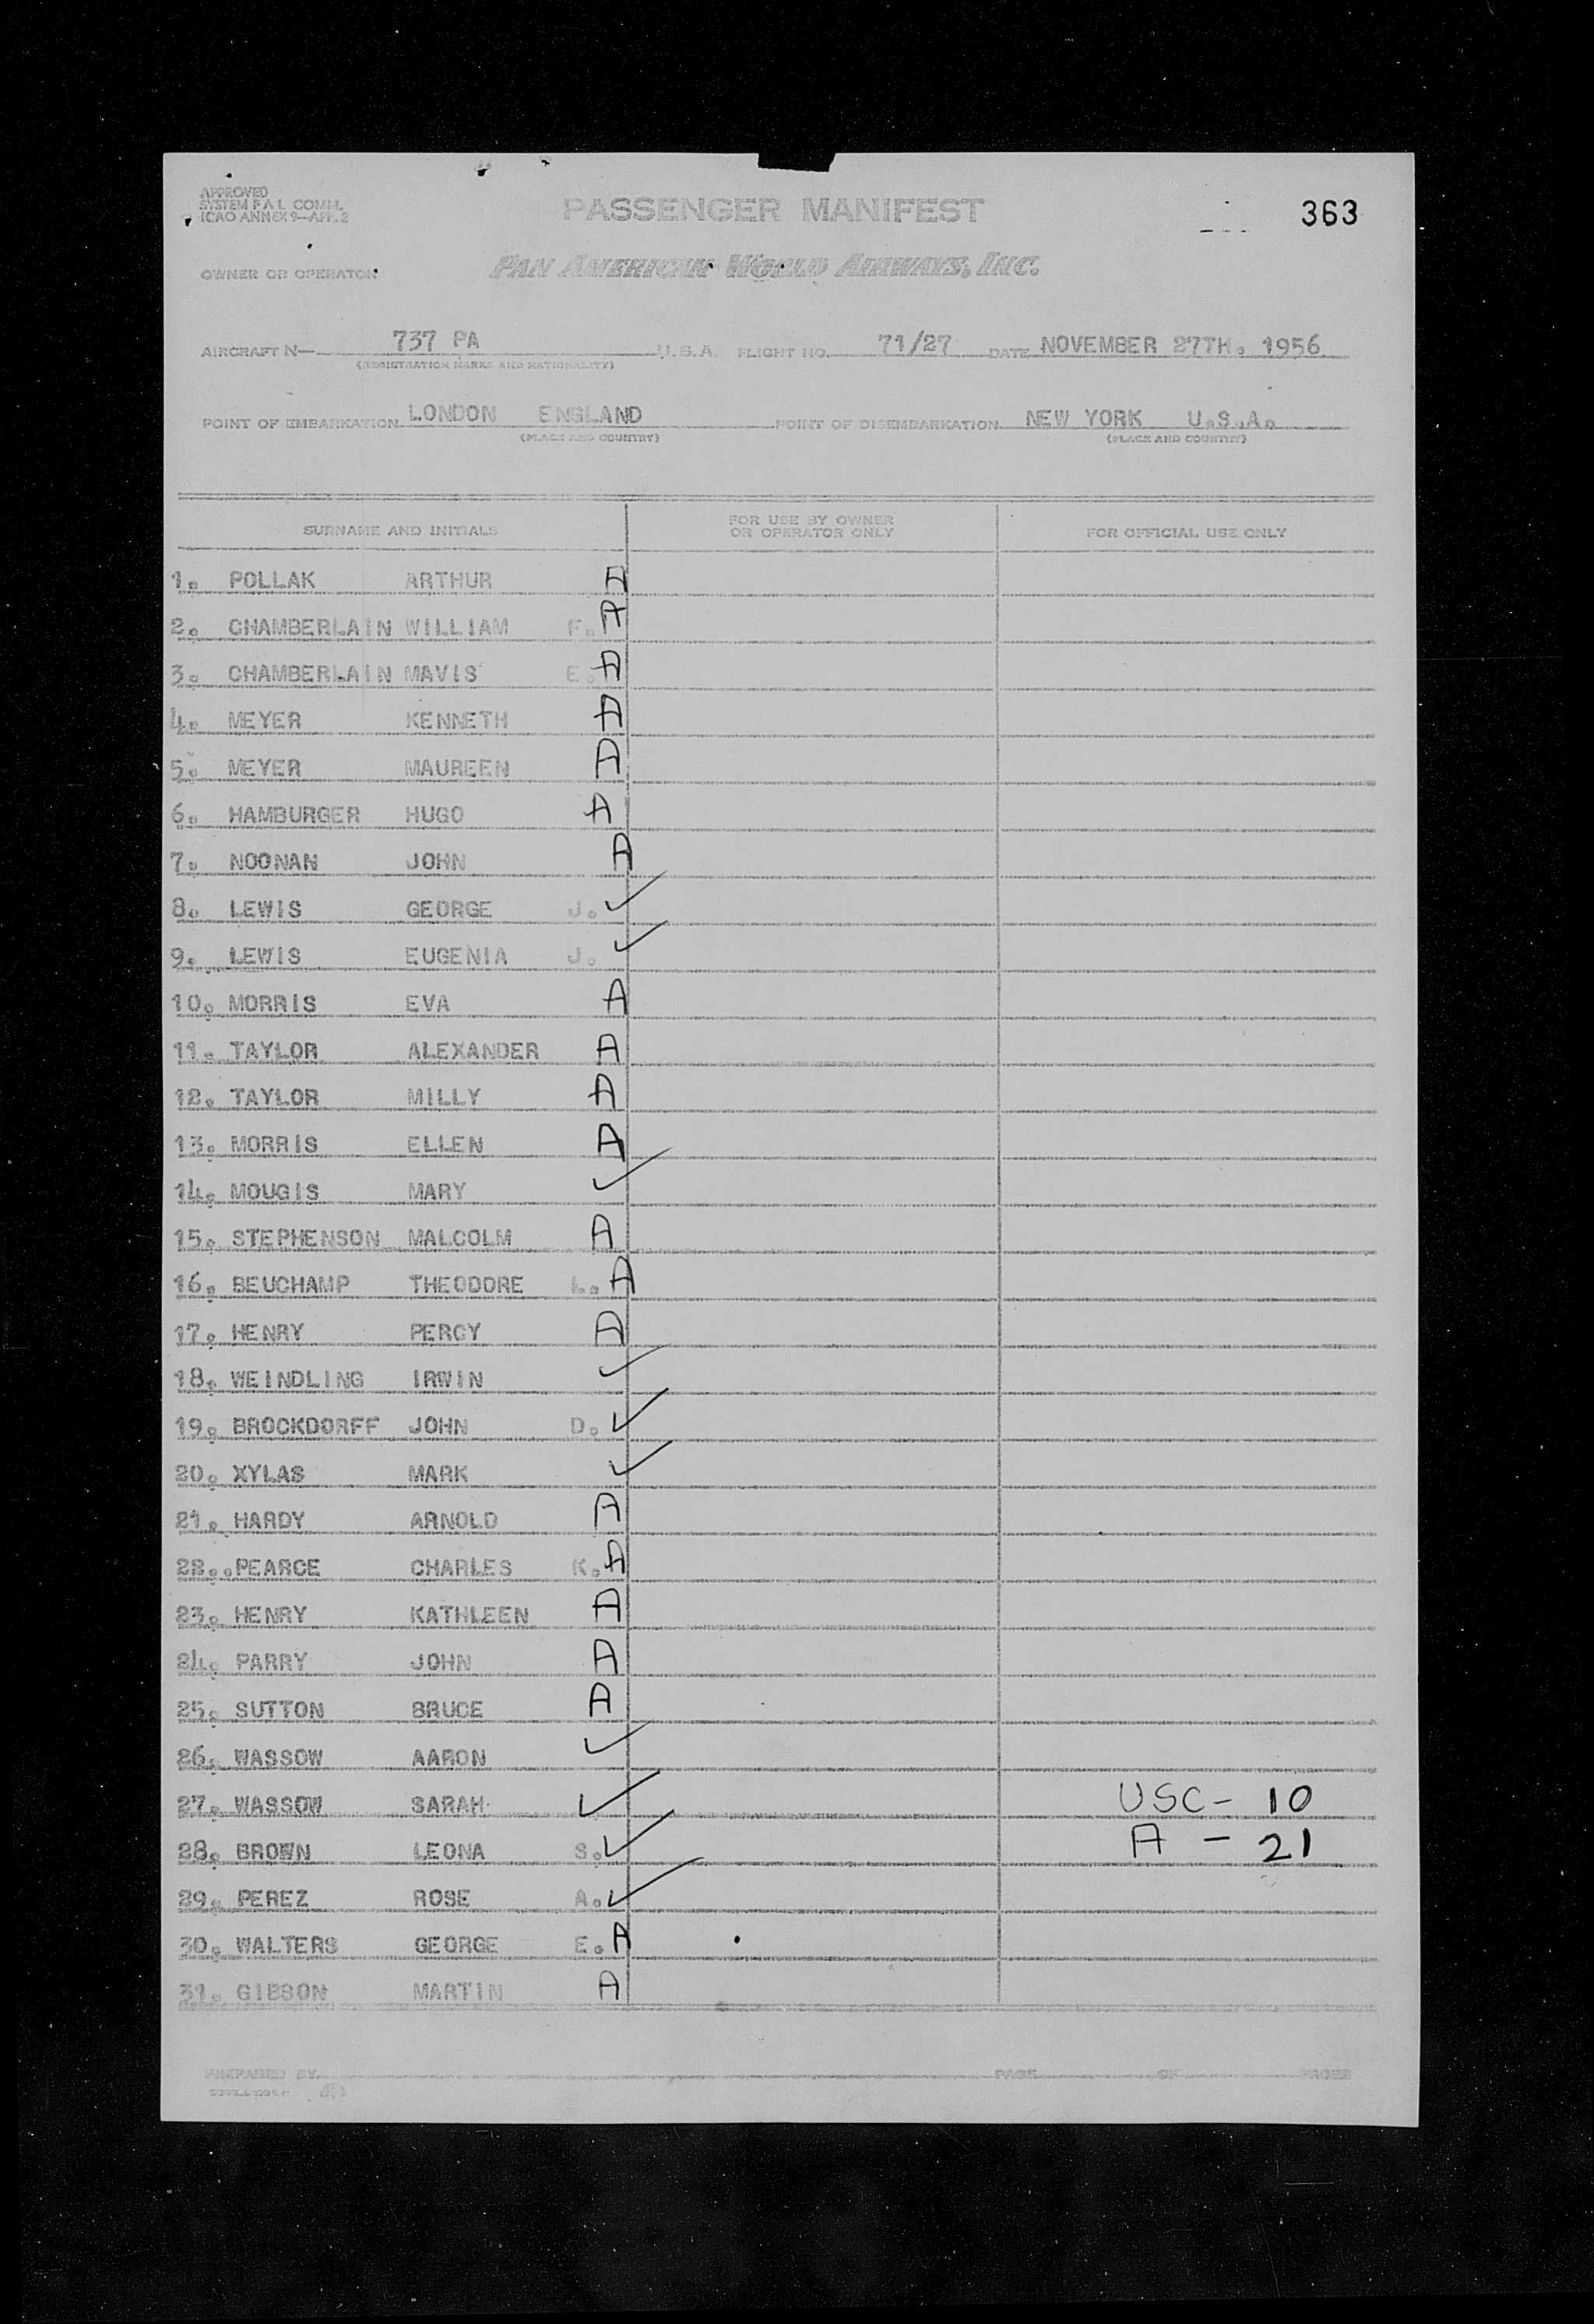 APPROVED
SYSTEM F.A.L. COMM.
ICAO ANNEX 9—APP. 2
PASSENGER MANIFEST
363
OWNER OR OPERATOR
PAN AMERICAN WORLD AIRWAYS, INC.
AIRCRAFT N— 737 PA U.S.A. FLIGHT NO. 71/27 DATE NOVEMBER 27TH. 1956
(REGISTRATION MARKS AND NATIONALITY)
POINT OF EMBARKATION LONDON ENGLAND POINT OF DISEMBARKATION NEW YORK U.S.A.
(PLACE AND COUNTRY) (PLACE AND COUNTRY)
SURNAME AND INITIALS FOR USE BY OWNER OR OPERATOR ONLY FOR OFFICIAL USE ONLY
1. POLLAK ARTHUR A
2. CHAMBERLAIN WILLIAM F. A
3. CHAMBERLAIN MAVIS E. A
4. MEYER KENNETH A
5. MEYER MAUREEN A
6. HAMBURGER HUGO A
7. NOONAN JOHN A
8. LEWIS GEORGE J. ✓
9. LEWIS EUGENIA J. ✓
10. MORRIS EVA A
11. TAYLOR ALEXANDER A
12. TAYLOR MILLY A
13. MORRIS ELLEN A
14. MOUGIS MARY ✓
15. STEPHENSON MALCOLM A
16. BEUCHAMP THEODORE L. A
17. HENRY PERCY A
18. WEINDLING IRWIN ✓
19. BROCKDORFF JOHN D. ✓
20. XYLAS MARK ✓
21. HARDY ARNOLD A
22..PEARCE CHARLES K. A
23. HENRY KATHLEEN A
24. PARRY JOHN A
25. SUTTON BRUCE A
26. WASSOW AARON ✓
27. WASSOW SARAH ✓ USC- 10
28. BROWN LEONA S. ✓ A - 21
29. PEREZ ROSE A. ✓
30. WALTERS GEORGE E. A
31. GIBSON MARTIN A
PREPARED BY PAGE OF PAGES